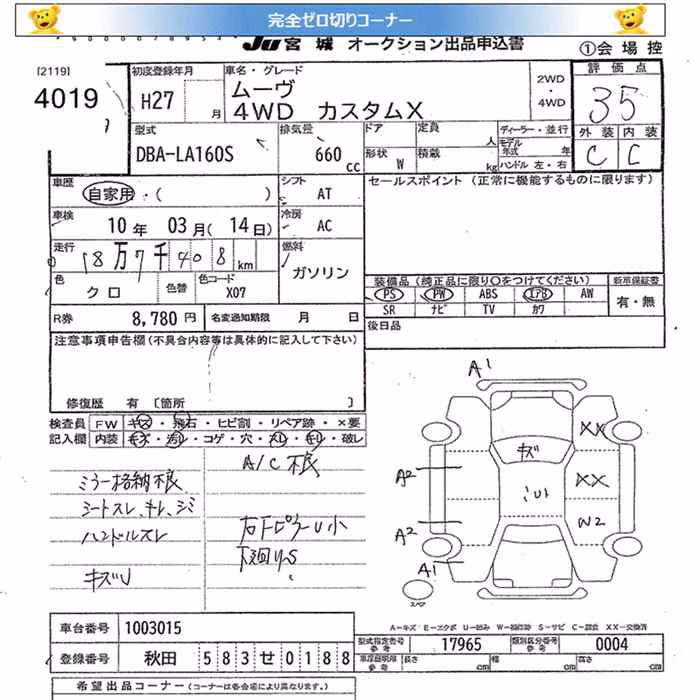 完全ゼロ切りコーナー
JU宮城 オークション出品申込書
①会場控
[2119]
4019
初度登録年月
H27 月
車名・グレード
ムーヴ
4WD カスタムX
2WD
・
4WD
評価点
35
型式
DBA-LA160S
排気量
660 cc
ドア
定員 人
形状 W
積載 kg
ディーラー・並行
モデル年式 年
ハンドル 左・右
外装 内装
C C
車歴
自家用・( )
シフト
AT
セールスポイント (正常に機能するものに限ります)
車検
10年 03月(14日)
冷房
AC
走行
18万7千408km
燃料
ガソリン
色
クロ
色替
色コード
X07
装備品 (純正品に限り〇をつけてください)
新車保証書
PS PW ABS エアB AW
SR ナビ TV カワ
有・無
R券 8,780円
名変通知期限 月 日
後日品
注意事項申告欄(不具合内容等は具体的に記入して下さい)
修復歴 有 [箇所 ]
検査員 FW キズ・飛石・ヒビ割・リペア跡・×要
記入欄 内装 キズ・汚レ・コゲ・穴・スレ・キレ・破レ
ミラー格納不良
シートスレ、キレ、シミ
ハンドルスレ
キズU
A/C不良
右下ピラーU小
下廻りS
A1
キズ
XX
A2
XX
A2
W2
A1
スペア
A-キズ E-エクボ U-凹み W-補修跡 S-サビ C-腐食 XX-交換済
車台番号 1003015
登録番号 秋田 583せ0188
型式指定番号 17965
類別区分番号 0004
長さ cm 幅 cm 高さ cm
希望出品コーナー(コーナーは各会場により異なります。)